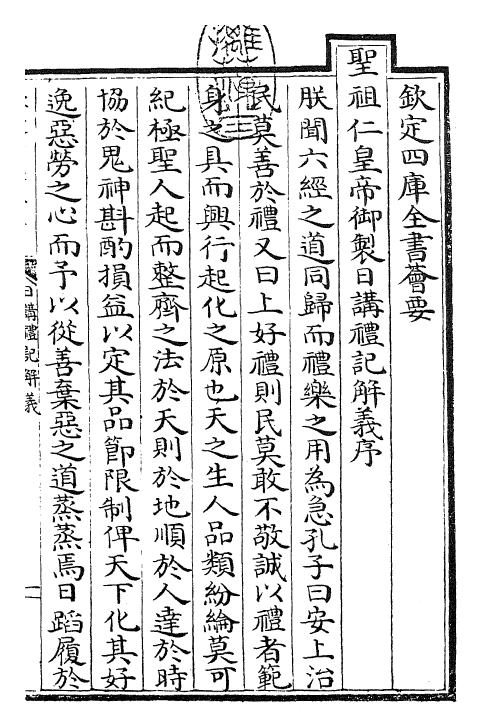 欽定四庫全書薈要
聖祖仁皇帝御製日講禮記解義序
朕聞六經之道同歸而禮樂之用為急孔子曰安上治
民莫善於禮又曰上好禮則民莫敢不敬誠以禮者範
身之具而興行起化之原也天之生人品類紛綸莫可
紀極聖人起而整齊之法於天則於地順於人達於時
協於鬼神斟酌損益以定其品節限制俾天下化其好
逸惡勞之心而予以從善棄惡之道蒸蒸焉日蹈履於
日講禮記解義